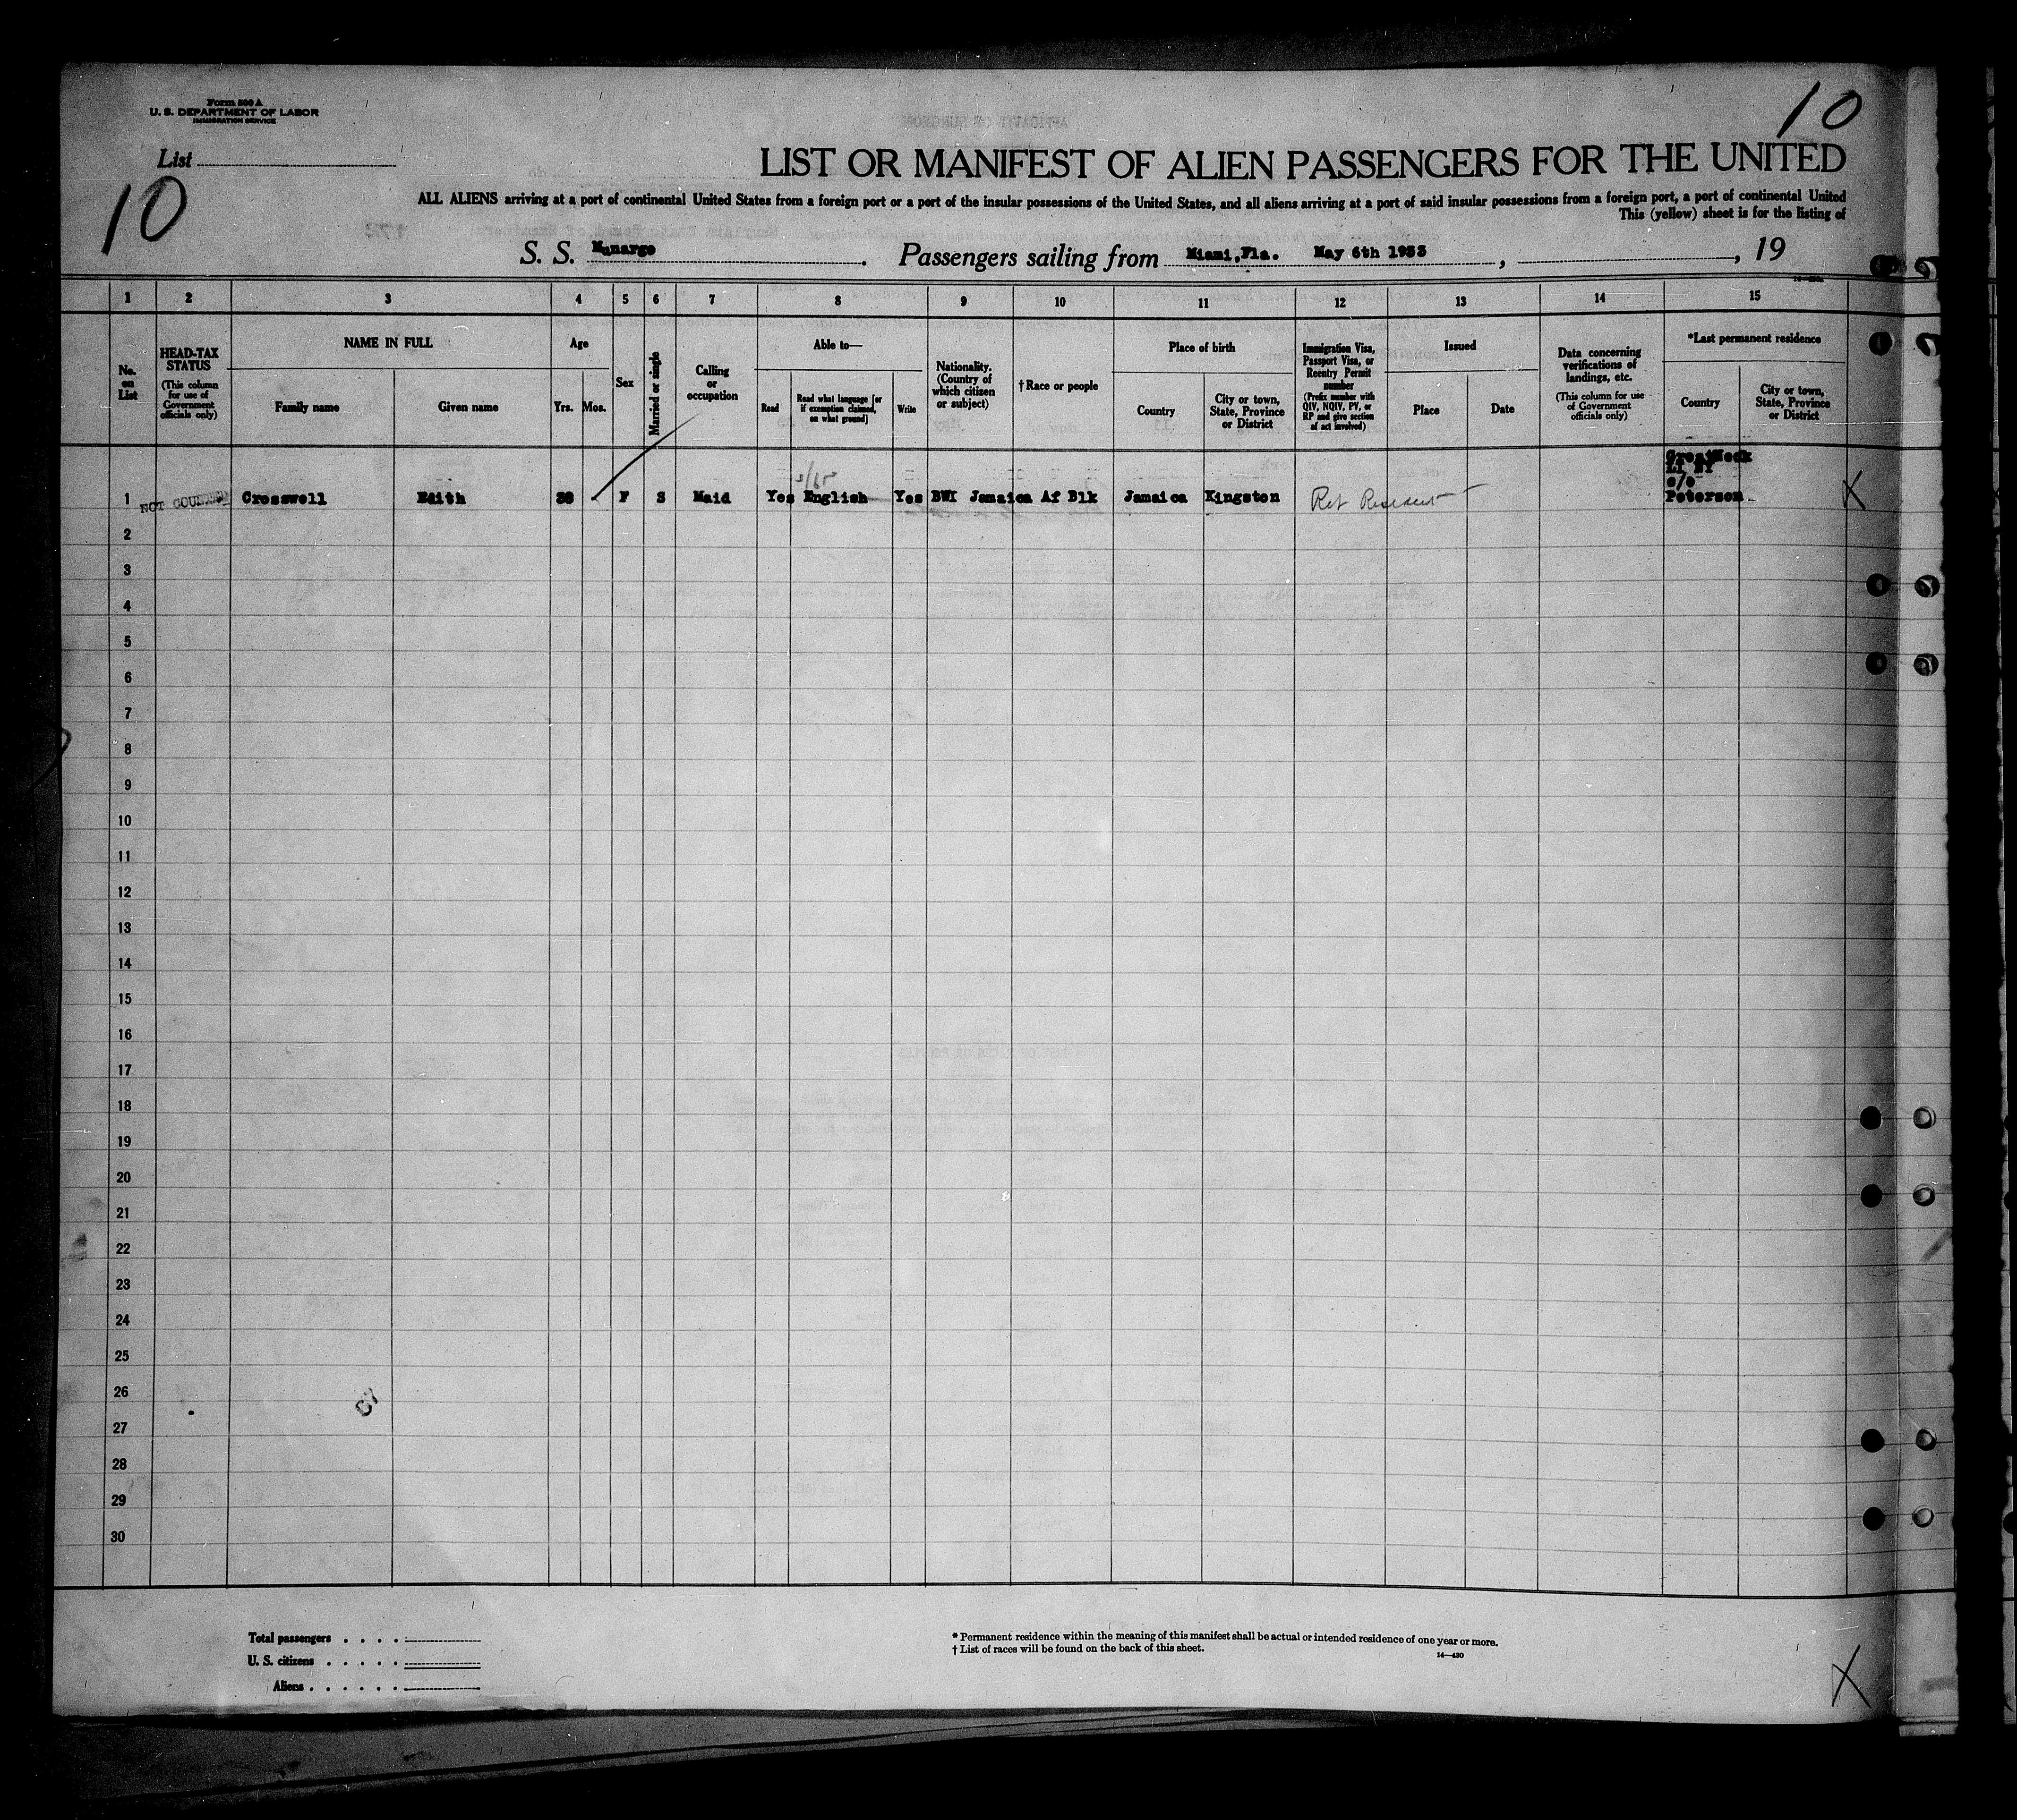 Form 500 A
U. S. DEPARTMENT OF LABOR
IMMIGRATION SERVICE
10
List
10
LIST OR MANIFEST OF ALIEN PASSENGERS FOR THE UNITED
ALL ALIENS arriving at a port of continental United States from a foreign port or a port of the insular possessions of the United States, and all aliens arriving at a port of said insular possessions from a foreign port, a port of continental United
This (yellow) sheet is for the listing of
S. S. Munargo . Passengers sailing from Miami,Fla. May 6th 1933 , , 19
1 2 3 4 5 6 7 8 9 10 11 12 13 14 15
No. on List
HEAD-TAX STATUS
(This column for use of Government officials only)
NAME IN FULL
Family name
Given name
Age
Yrs. Mos.
Sex
Married or single
Calling or occupation
Able to—
Read
Read what language [or if exemption claimed, on what ground]
Write
Nationality. (Country of which citizen or subject)
† Race or people
Place of birth
Country
City or town, State, Province or District
Immigration Visa, Passport Visa, or Reentry Permit number
(Prefix number with QIV, NQIV, PV, or RP and give section of act involved)
Issued
Place
Date
Data concerning verifications of landings, etc.
(This column for use of Government officials only)
*Last permanent residence
Country
City or town, State, Province or District
GreatNeck
LI NY
c/o
Peterson
1 NOT COUNTED Cresswell Edith F S Maid Yes English Yes BWI Jamaica Af Blk Jamaica Kingston Ret Resident X
2
3
4
5
6
7
8
9
10
11
12
13
14
15
16
17
18
19
20
21
22
23
24
25
26
27
28
29
30
Total passengers . . . .
U. S. citizens . . . . .
Aliens . . . . . .
* Permanent residence within the meaning of this manifest shall be actual or intended residence of one year or more.
† List of races will be found on the back of this sheet.
14—430
X